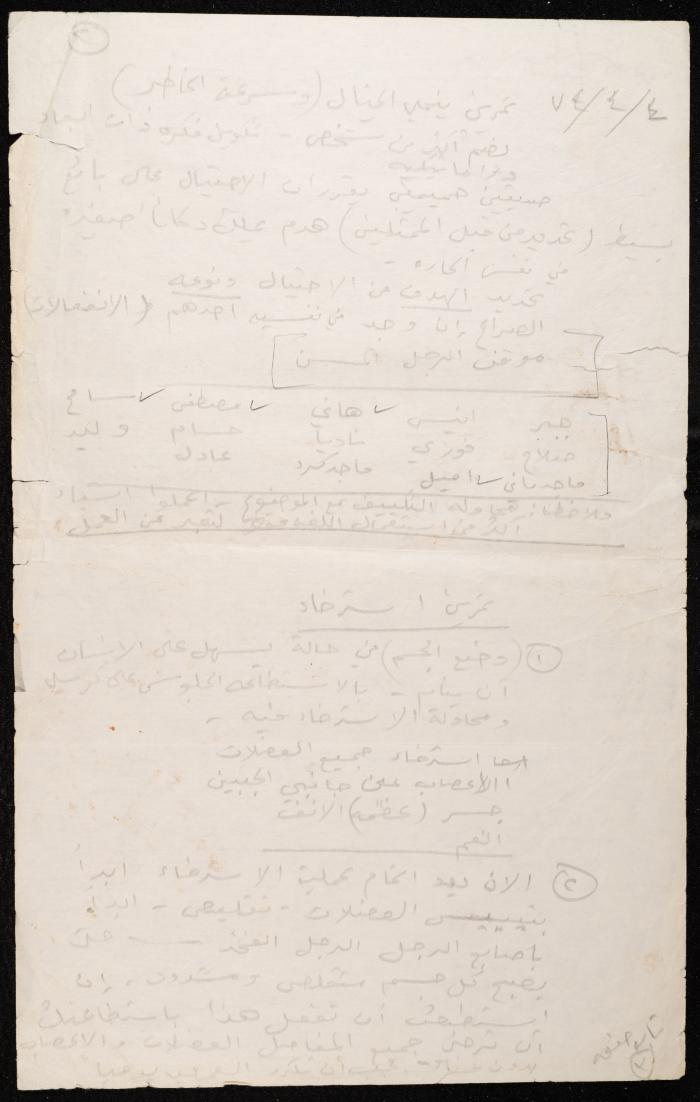 ٢
٧٤/٤/٤ تمرين ينمي الخيال (وسرعة الخاطر)
يضم أكثر من شخص - تكوين فكرة ذات ابعاد
صديقين حميمين يقرران الاحتيال على بائع
بسيط (تحديد من قبل الممثلين) هرم يملك دكانا صغيرة
في نفس الحارة -
تحديد الهدف من الاحتيال ونوعه
الصراع إن وجد في نفسية احدهم (الانفعالات)
موقف الرجل المسن
جبر انيس هاني مصطفى سامح
فوزي ناديا حسام وليد
اميل ماجد عادل
ملاحظات: محاولة التكييف مع الموضوع - اعملوا اشياء
أكثر من استعمال اللفظ لتعبر عن العمل
تمرين استرخاء
١ (وضع الجسم) في حالة يسهل على الانسان
أن ينام - بالاستطاعة الجلوس على كرسي
ومحاولة الاسترخاء فيه -
استرخاء جميع العضلات
الأعصاب على جانبي الجبين
جسر (عظمة) الانف
الفم
٢ الآن بعد اتمام عملية الاسترخاء ابدأ
بتيبيس العضلات - تقليص - ابدأ
بأصابع الرجل الرجل الفخذ حتى
يصبح كل جسم متقلص ومشدود، إن
استطعت أن تفعل هذا باستطاعتك
أن ترخي جميع المفاصل العضلات والأعصاب
بدون يجب أن تكرر يوميا
تابع صفحة
٣